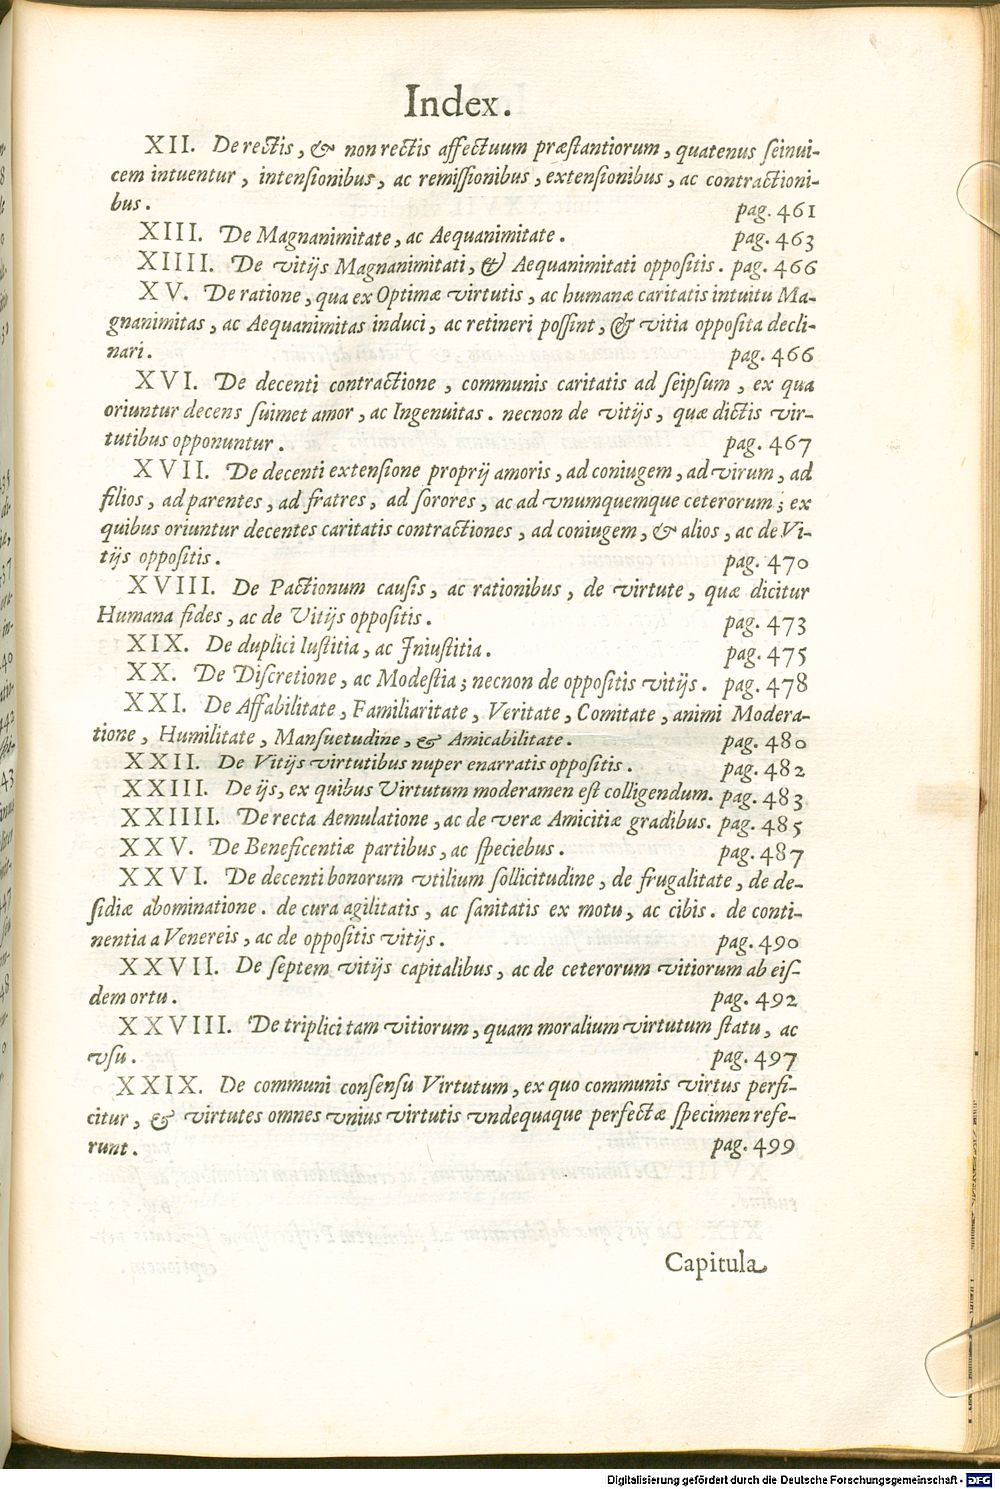 Index.
XII. De rectis, & non rectis affectuum præstantiorum, quatenus seinui-
cem intuentur, intensionibus, ac remissionibus, extensionibus, ac contractioni-
bus. pag. 461
XIII. De Magnanimitate, ac Aequanimitate. pag. 463
XIIII. De vitijs Magnanimitati, & Aequanimitati oppositis. pag. 466
XV. De ratione, qua ex Optimæ virtutis, ac humanæ caritatis intuitu Ma-
gnanimitas, ac Aequanimitas induci, ac retineri possint, & vitia opposita decli-
nari. pag. 466
XVI. De decenti contractione, communis caritatis ad seipsum, ex qua
oriuntur decens suimet amor, ac Ingenuitas. necnon de vitijs, quæ dictis vir-
tutibus opponuntur. pag. 467
XVII. De decenti extensione proprij amoris, ad coniugem, ad virum, ad
filios, ad parentes, ad fratres, ad sorores, ac ad vnumquemque ceterorum; ex
quibus oriuntur decentes caritatis contractiones, ad coniugem, & alios, ac de Vi-
tijs oppositis. pag. 470
XVIII. De Pactionum causis, ac rationibus, de virtute, quæ dicitur
Humana fides, ac de Vitijs oppositis. pag. 473
XIX. De duplici Iustitia, ac Iniustitia. pag. 475
XX. De Discretione, ac Modestia; necnon de oppositis vitijs. pag. 478
XXI. De Affabilitate, Familiaritate, Veritate, Comitate, animi Modera-
tione, Humilitate, Mansuetudine, & Amicabilitate. pag. 480
XXII. De Vitijs virtutibus nuper enarratis oppositis. pag. 482
XXIII. De ijs, ex quibus Virtutum moderamen est colligendum. pag. 483
XXIIII. De recta Aemulatione, ac de veræ Amicitiæ gradibus. pag. 485
XXV. De Beneficentiæ partibus, ac speciebus. pag. 487
XXVI. De decenti bonorum vtilium sollicitudine, de frugalitate, de de-
sidiæ abominatione. de cura agilitatis, ac sanitatis ex motu, ac cibis. de conti-
nentia a Venereis, ac de oppositis vitijs. pag. 490
XXVII. De septem vitijs capitalibus, ac de ceterorum vitiorum ab eis-
dem ortu. pag. 492
XXVIII. De triplici tam vitiorum, quam moralium virtutum statu, ac
vsu. pag. 497
XXIX. De communi consensu Virtutum, ex quo communis virtus perfi-
citur, & virtutes omnes vnius virtutis vndequaque perfectæ specimen refe-
runt. pag. 499
Capitula
Digitalisierung gefördert durch die Deutsche Forschungsgemeinschaft - DFG